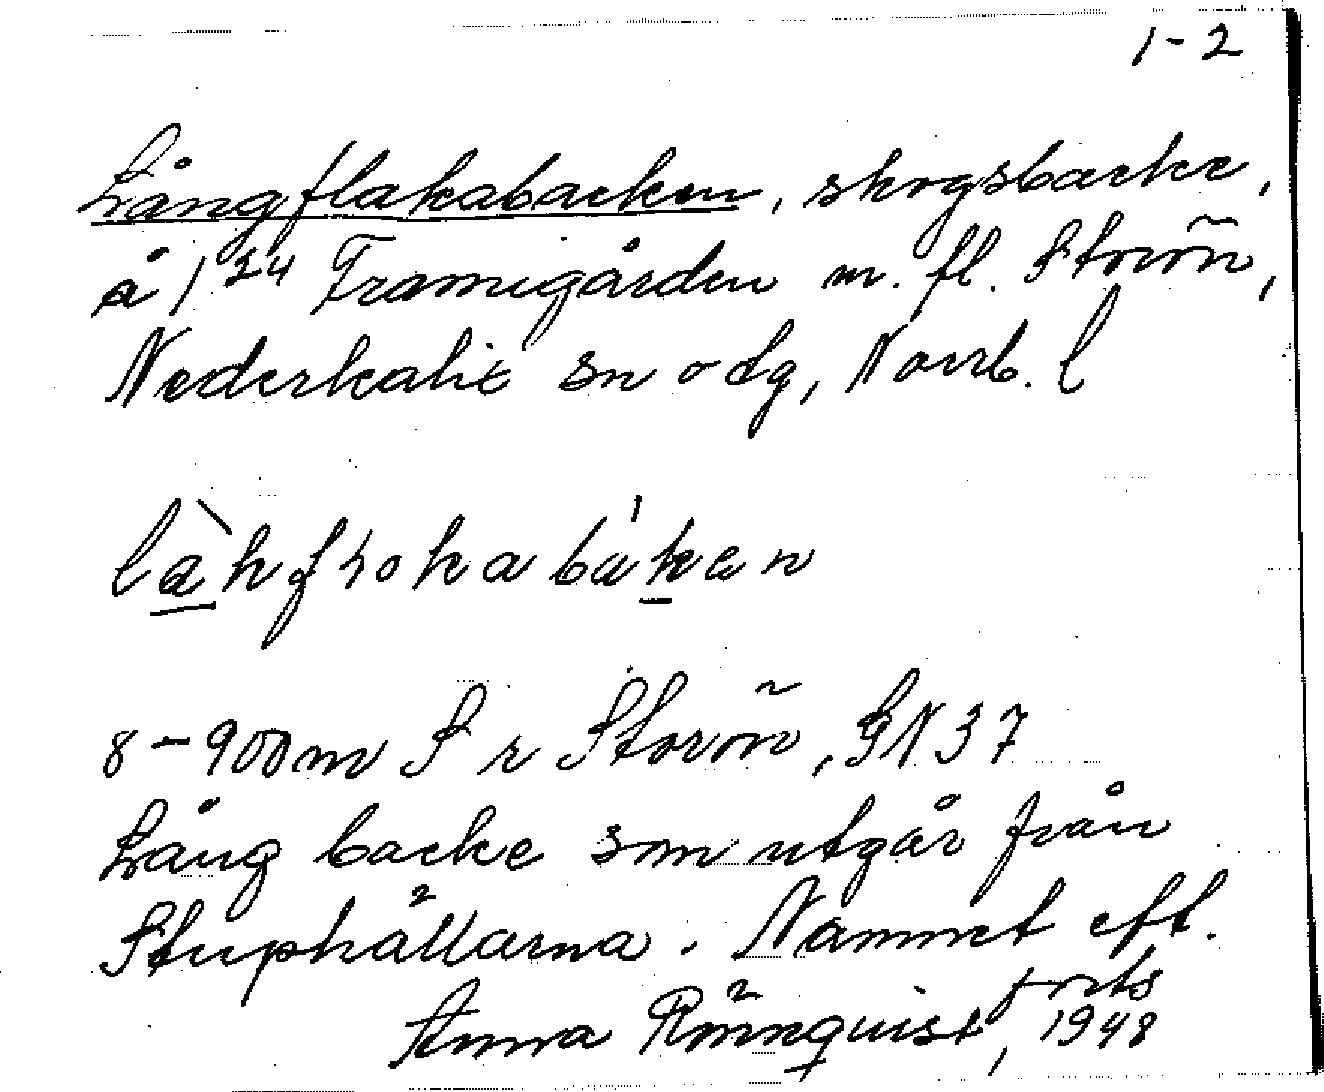 1-2
Långflakabacken, skogsbacke,
å 1²⁴ Frannigården m. fl. Storön,
Nederkalix sn o dg, Norrb. l
8-900m S r Storön, GN37
Lång backe som utgår från
Stuphällarna. Namnet eft.
forts
Anna Rönnquist, 1948